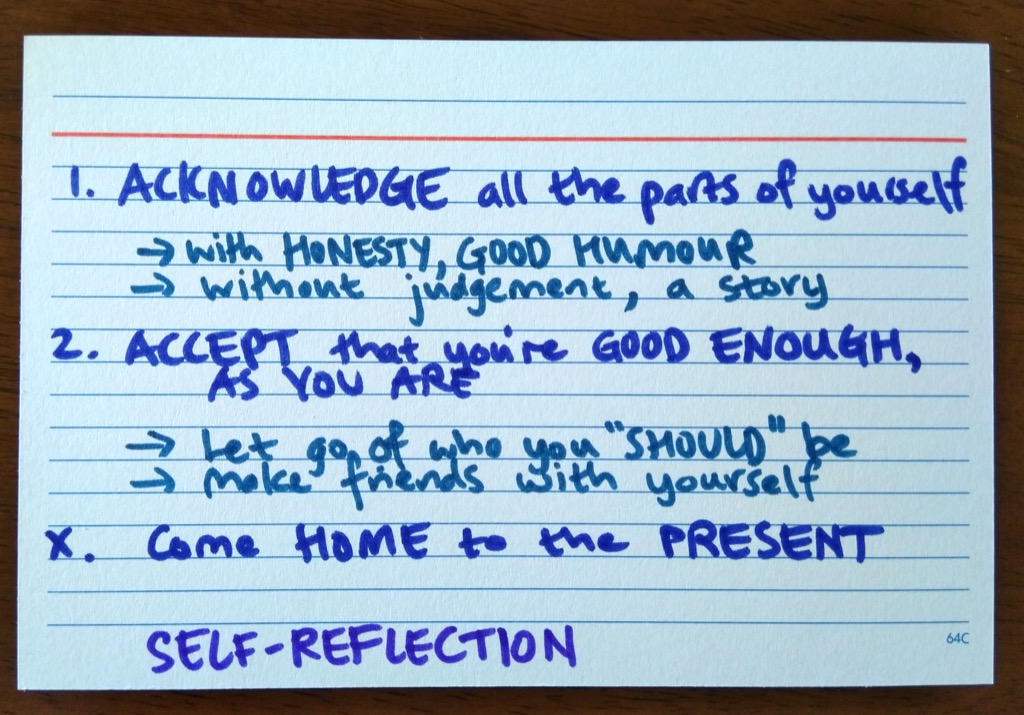 1. ACKNOWLEDGE all the parts of yourself
→ with HONESTY, GOOD HUMOUR
→ without judgement, a story
2. ACCEPT that you're GOOD ENOUGH,
AS YOU ARE
→ Let go of who you "SHOULD" be
→ make friends with yourself
X. Come HOME to the PRESENT
64C
SELF-REFLECTION